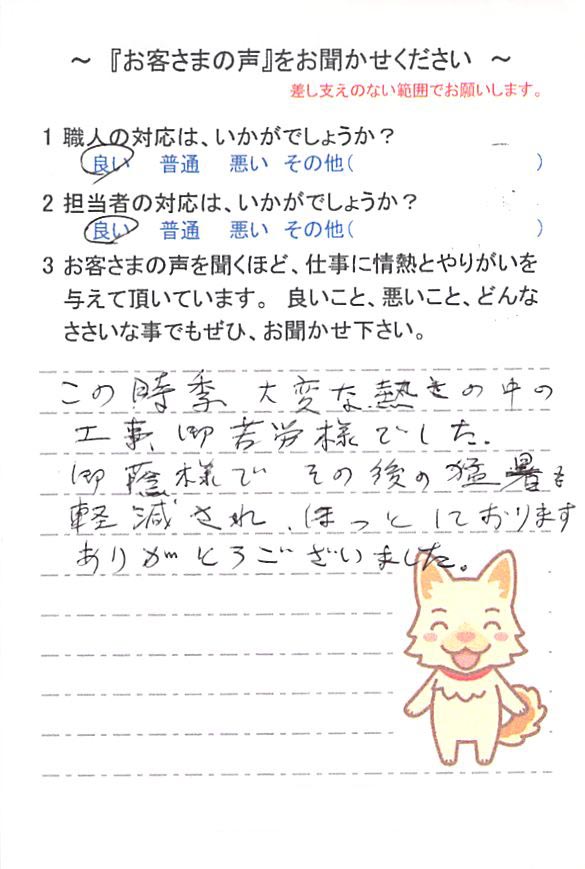 ～ 『お客さまの声』をお聞かせください ～
差し支えのない範囲でお願いします。
1 職人の対応は、いかがでしょうか？
良い 普通 悪い その他( )
2 担当者の対応は、いかがでしょうか？
良い 普通 悪い その他( )
3 お客さまの声を聞くほど、仕事に情熱とやりがいを
与えて頂いています。 良いこと、悪いこと、どんな
ささいな事でもぜひ、お聞かせ下さい。
この時季、大変な熱さの中の
工事、御苦労様でした。
御蔭様で その後の猛暑も
軽減され、ほっとしております
ありがとうございました。